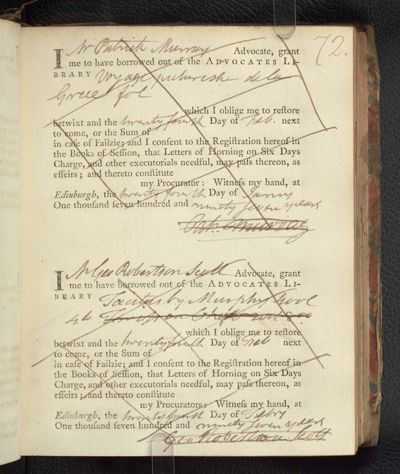 72.
I Mr Patrick Murray Advocate, grant
me to have borrowed out of the ADVOCATES LI-
BRARY Voyage pittoreske de la
Grece fol
which I oblige me to reſtore
betwixt and the twenty fourth Day of Feb. next
to come, or the Sum of
in caſe of Failzie; and I conſent to the Regiſtration hereof in
the Books of Seſſion, that Letters of Horning on Six Days
Charge, and other executorials needful, may paſs thereon, as
effeirs; and thereto conſtitute
my Procurator: Witneſs my hand, at
Edinburgh, the twenty fourth Day of
One thouſand ſeven hundred and ninety seven years
Pat. Murray
I Mr Geo Robertson Scott Advocate, grant
me to have borrowed out of the ADVOCATES LI-
BRARY Tacitus by Murphy
4to
which I oblige me to reſtore
betwixt and the twenty fourth Day of Feb next
to come, or the Sum of
in caſe of Failzie; and I conſent to the Regiſtration hereof in
the Books of Seſſion, that Letters of Horning on Six Days
Charge, and other executorials needful, may paſs thereon, as
effeirs; and thereto conſtitute
my Procurators: Witneſs my hand, at
Edinburgh, the twenty fourth Day of
One thouſand ſeven hundred and ninety seven years
Geo Robertson Scott